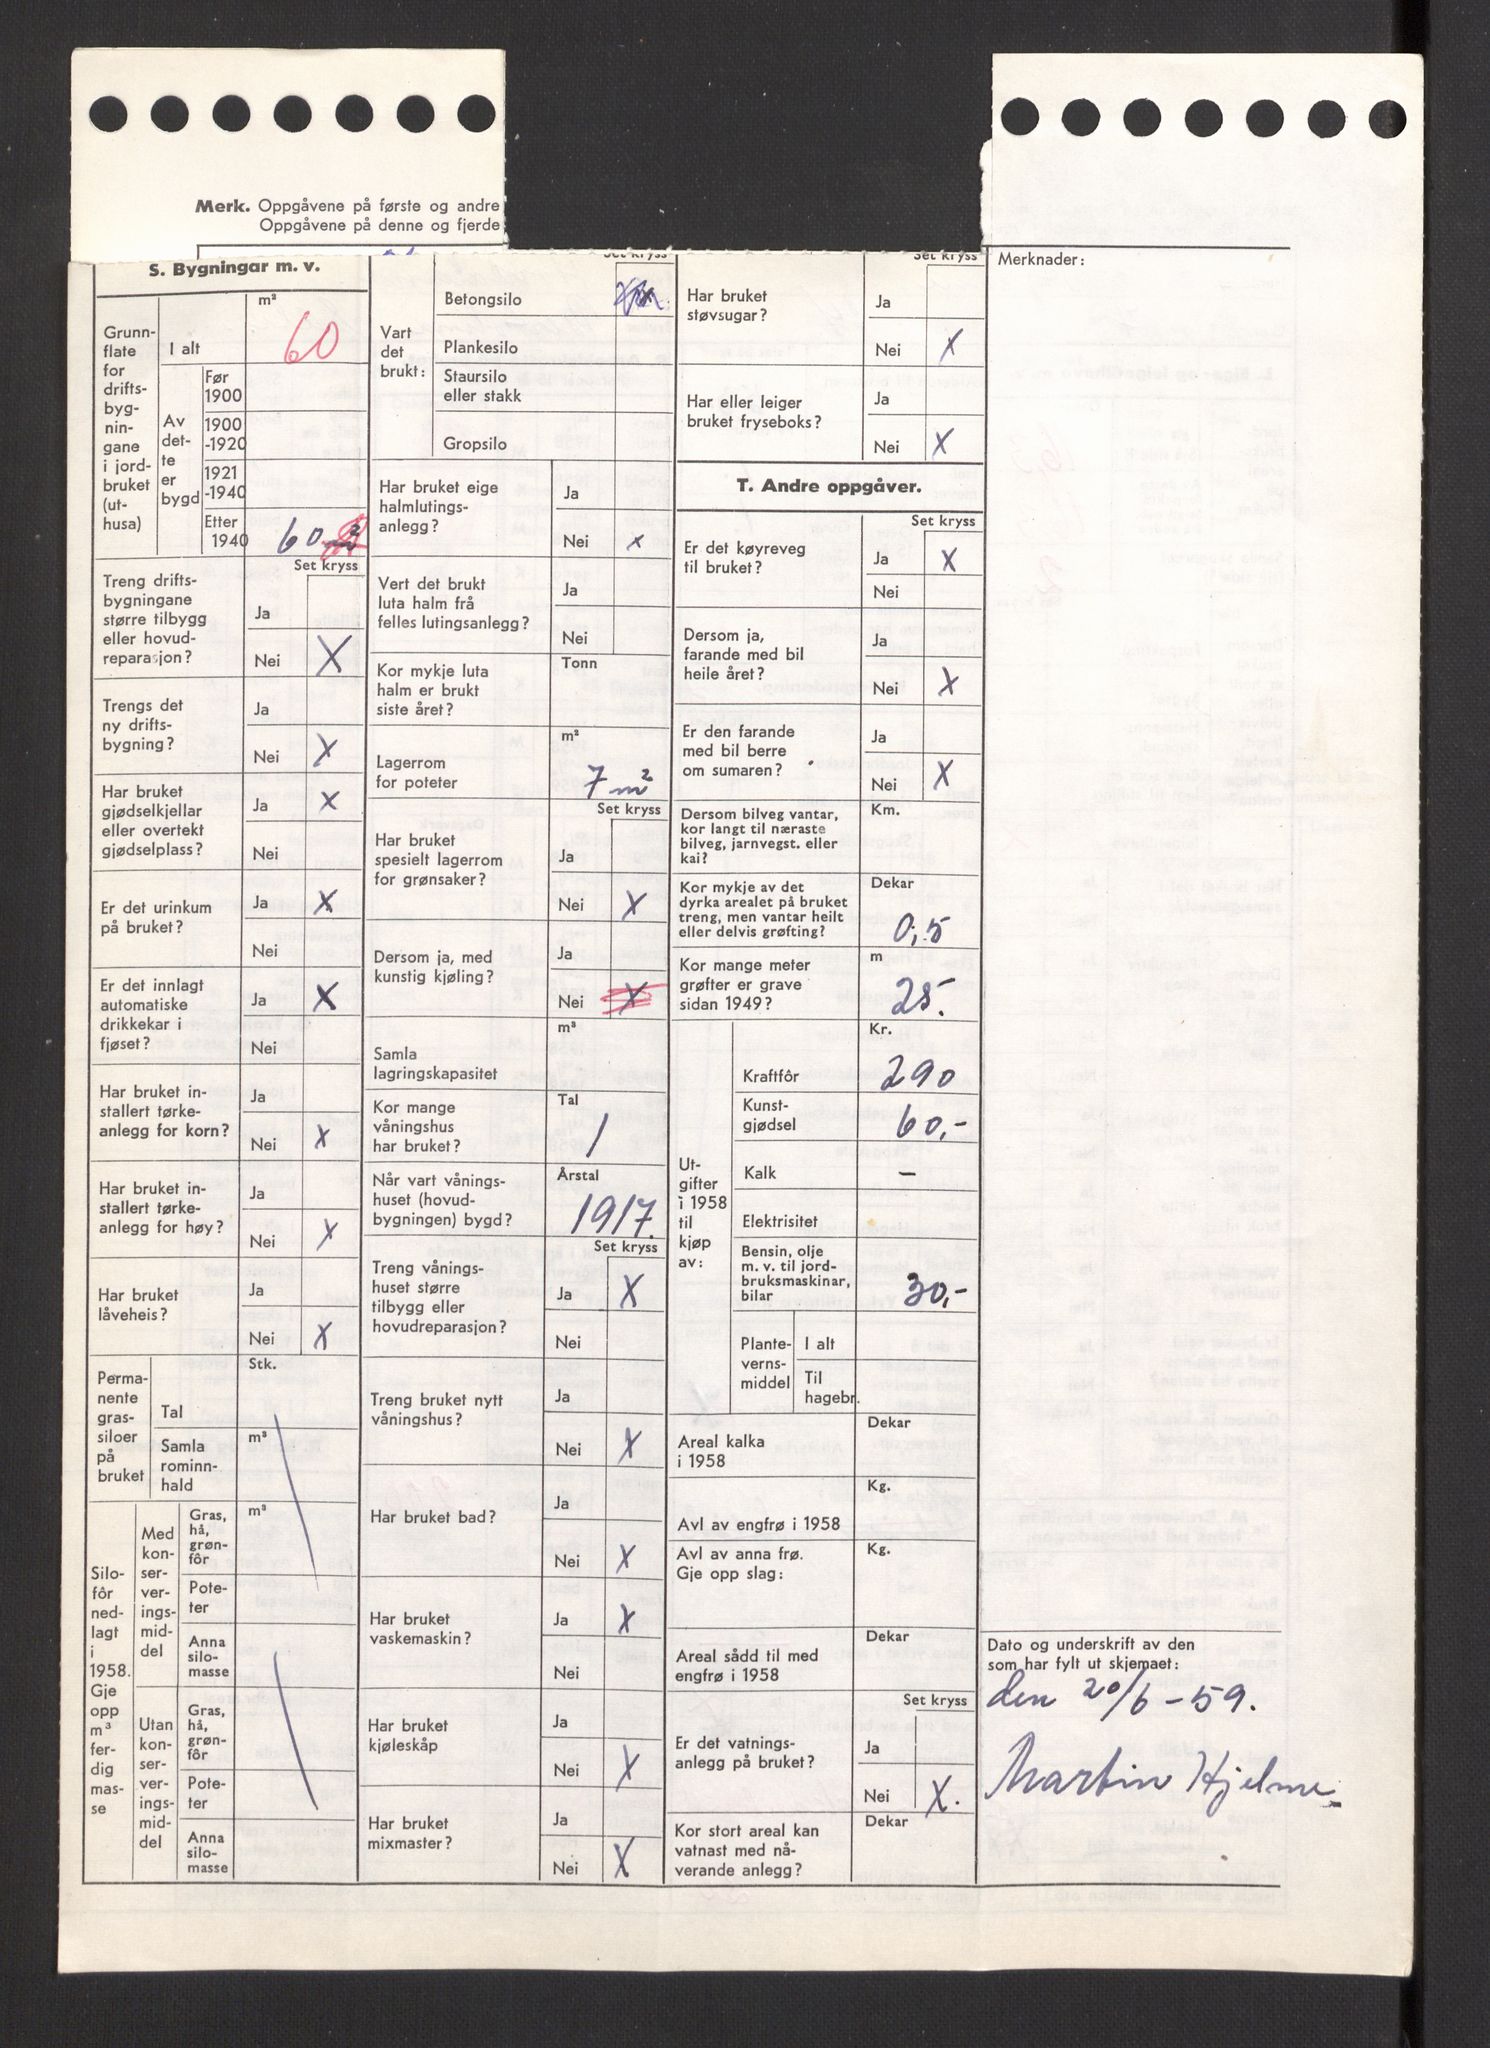 Merk. Oppgåvene på første og andre
Oppgåvene på denne og fjerde
S. Bygningar m. v.
Grunn-
flate
for
drifts-
byg-
nin-
gane
i jord-
bruket
(ut-
husa)
m²
I alt 60
Av
det-
te
er
bygd
Før
1900
1900
-1920
1921
-1940
Etter
1940 60 m²
Set kryss
Treng drifts-
bygningane
større tilbygg
eller hovud-
reparasjon?
Ja
Nei X
Trengs det
ny drifts-
bygning?
Ja
Nei X
Har bruket
gjødselkjellar
eller overtekt
gjødselplass?
Ja X
Nei
Er det urinkum
på bruket?
Ja X
Nei
Er det innlagt
automatiske
drikkekar i
fjøset?
Ja X
Nei
Har bruket in-
stallert tørke-
anlegg for korn?
Ja
Nei X
Har bruket in-
stallert tørke-
anlegg for høy?
Ja
Nei X
Har bruket
låveheis?
Ja
Nei X
Perma-
nente
gras-
siloer
på
bruket
Stk.
Tal
Samla
rominn-
hald
m³
Silo-
fôr
ned-
lagt
i
1958.
Gje
opp
m³
fer-
dig
mas-
se
Med
kon-
ser-
ver-
ings-
mid-
del
Gras,
hå,
grøn-
fôr
m³
Pote-
ter
Anna
silo-
masse
Utan
kon-
ser-
ver-
ings-
mid-
del
Gras,
hå,
grøn-
fôr
Pote-
ter
Anna
silo-
masse
Set kryss
Vart
det
brukt:
Betongsilo
Plankesilo
Staursilo
eller stakk
Gropsilo
Har bruket eige
halmlutings-
anlegg?
Ja
Nei x
Vert det brukt
luta halm frå
felles lutingsanlegg?
Ja
Nei
Kor mykje luta
halm er brukt
siste året?
Tonn
Lagerrom
for poteter
m²
7 m²
Set kryss
Har bruket
spesielt lagerrom
for grønsaker?
Ja
Nei X
Dersom ja, med
kunstig kjøling?
Ja
Nei X
Samla
lagringskapasitet
m³
Kor mange
våningshus
har bruket?
Tal
1
Når vart vånings-
huset (hovud-
bygningen) bygd?
Årstal
1917.
Set kryss
Treng vånings-
huset større
tilbygg eller
hovudreparasjon?
Ja X
Nei
Treng bruket nytt
våningshus?
Ja
Nei X
Har bruket bad?
Ja
Nei X
Har bruket
vaskemaskin?
Ja X
Nei
Har bruket
kjøleskåp
Ja
Nei X
Har bruket
mixmaster?
Ja
Nei X
Set kryss
Har bruket
støvsugar?
Ja
Nei X
Har eller leiger
bruket fryseboks?
Ja
Nei X
T. Andre oppgåver.
Set kryss
Er det køyreveg
til bruket?
Ja X
Nei
Dersom ja,
farande med bil
heile året?
Ja
Nei X
Er den farande
med bil berre
om sumaren?
Ja
Nei X
Dersom bilveg vantar,
kor langt til næraste
bilveg, jarnvegst. eller
kai?
Km.
Kor mykje av det
dyrka arealet på bruket
treng, men vantar heilt
eller delvis grøfting?
Dekar
0,5
Kor mange meter
grøfter er grave
sidan 1949?
m
25.
Ut-
gifter
i 1958
til
kjøp
av:
Kr.
Kraftfôr 290
Kunst-
gjødsel 60,-
Kalk –
Elektrisitet
Bensin, olje
m. v. til jord-
bruksmaskinar,
bilar 30,-
Plante-
verns-
middel
I alt
Til
hagebr.
Areal kalka
i 1958
Dekar
Avl av engfrø i 1958
Kg.
Avl av anna frø.
Gje opp slag:
Kg.
Areal sådd til med
engfrø i 1958
Dekar
Set kryss
Er det vatnings-
anlegg på bruket?
Ja
Nei X.
Kor stort areal kan
vatnast med nå-
verande anlegg?
Dekar
Merknader:
Dato og underskrift av den
som har fylt ut skjemaet:
den 20/6 - 59.
Martin Hjelme